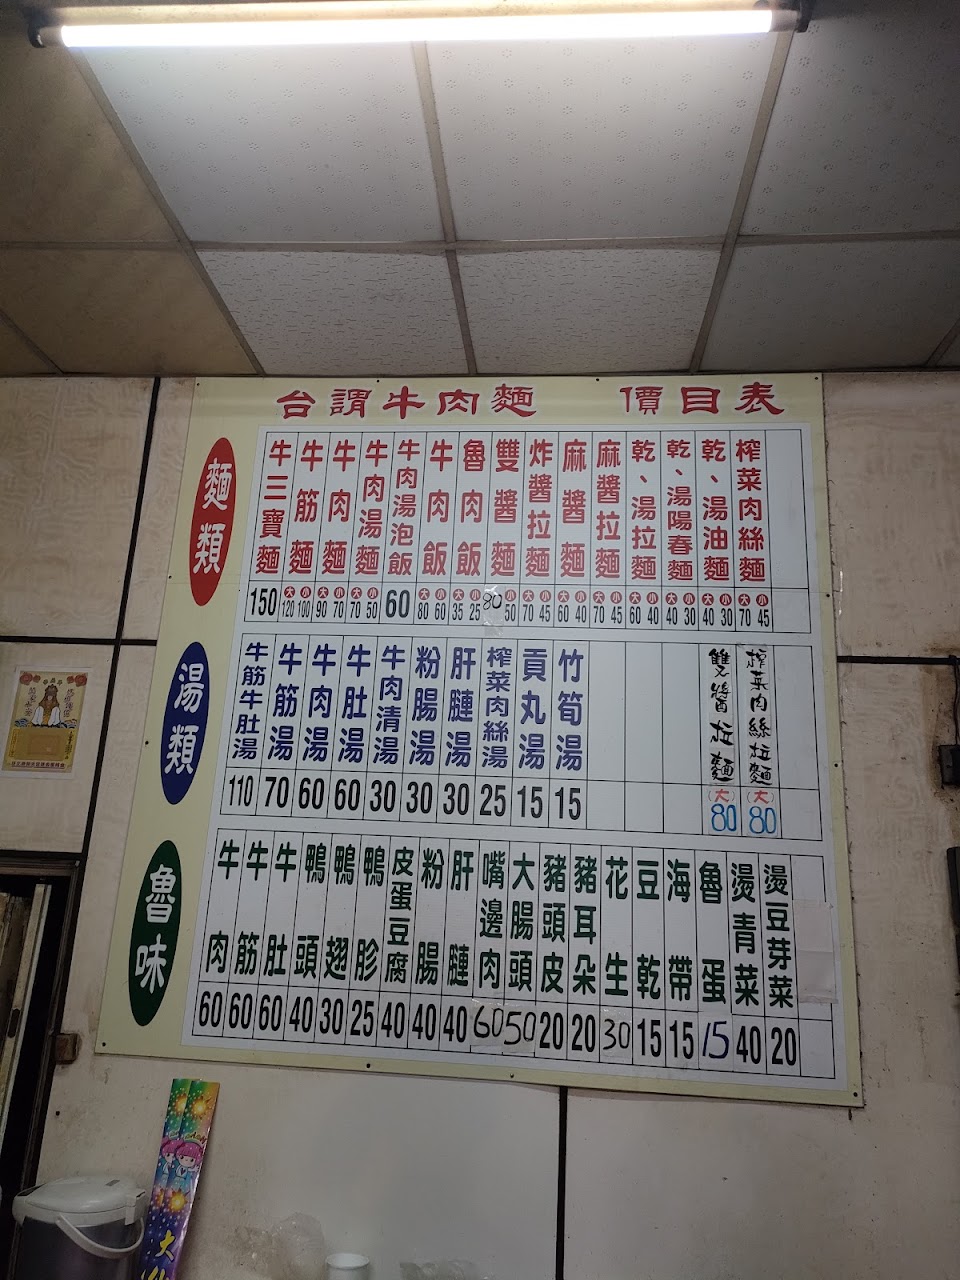 台謂牛肉麵 價目表
麵類
牛三寶麵 150
牛筋麵 大120 小100
牛肉麵 大90 小70
牛肉湯麵 大70 小50
牛肉湯泡飯 60
牛肉飯 大80 小60
魯肉飯 大35 小25
雙醬麵 80 50
炸醬拉麵 大70 小45
麻醬麵 大60 小40
麻醬拉麵 大70 小45
乾、湯拉麵 大60 小40
乾、湯陽春麵 大40 小30
乾、湯油麵 大40 小30
榨菜肉絲麵 大70 小45
湯類
牛筋牛肚湯 110
牛筋湯 70
牛肉湯 60
牛肚湯 60
牛肉清湯 30
粉腸湯 30
肝腱湯 30
榨菜肉絲湯 25
貢丸湯 15
竹筍湯 15
雙醬拉麵 (大) 80
榨菜肉絲拉麵 (大) 80
魯味
牛肉 60
牛筋 60
牛肚 60
鴨頭 40
鴨翅 30
鴨胗 25
皮蛋豆腐 40
粉腸 40
肝腱 40
嘴邊肉 60
大腸頭 50
豬頭皮 20
豬耳朵 20
花生 30
豆乾 15
海帶 15
魯蛋 15
燙青菜 40
燙豆芽菜 20
大